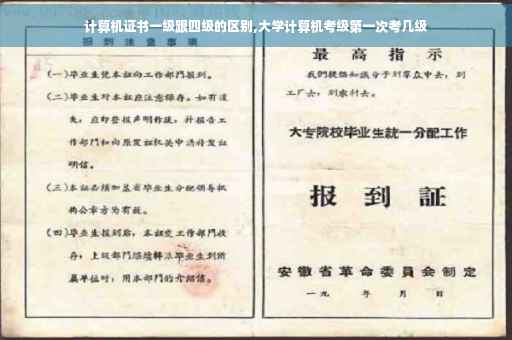 计算机证书一级跟四级的区别,大学计算机考级第一次考几级
报到注意事项
(一)毕业生凭本证向工作部門报到。
(二)毕业生对本证应注意保存。如有遗
失,应即登报声明作废,并报告工
作部門和向原发证机关申請补发证
明信。
(三)本证必須加盖省毕业生分配领导机
构公章方为有效。
(四)毕业生报到后,本证交工作部門收
存;上级部門继續轉派毕业生到所
属单位时,用本部門的介紹信。
最高指示
我們提倡知識分子到羣众中去,到
工厂去,到农村去。
大专院校毕业生統一分配工作
报到証
安徽省革命委員会制定
一九 年 月 日